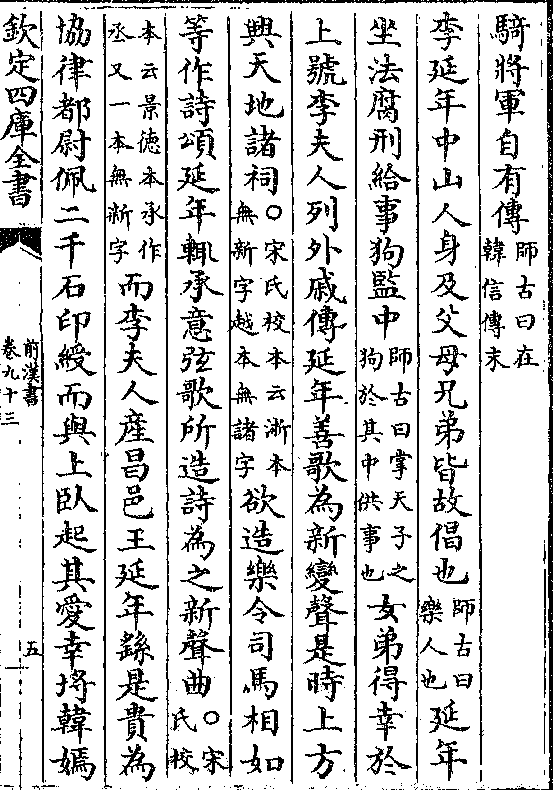 騎將軍自有傳師古曰在韓信傳末
李延年中山人身及父母兄弟皆故倡也師古曰樂人也延年
坐法腐刑給事狗監中師古曰掌天子之狗於其中供事也女弟得幸於
上號李夫人列外戚傳延年善歌為新變聲是時上方
興天地諸祠○宋氏校本云浙本無新字越本無諸字欲造樂令司馬相如
等作詩頌延年輒承意弦歌所造詩為之新聲曲○宋氏校
本云景德本承作丞又一本無新字而李夫人產昌邑王延年繇是貴為
協律都尉佩二千石印綬而與上臥起其愛幸埒韓嫣
欽定四庫全書
前漢書
卷九十三
五